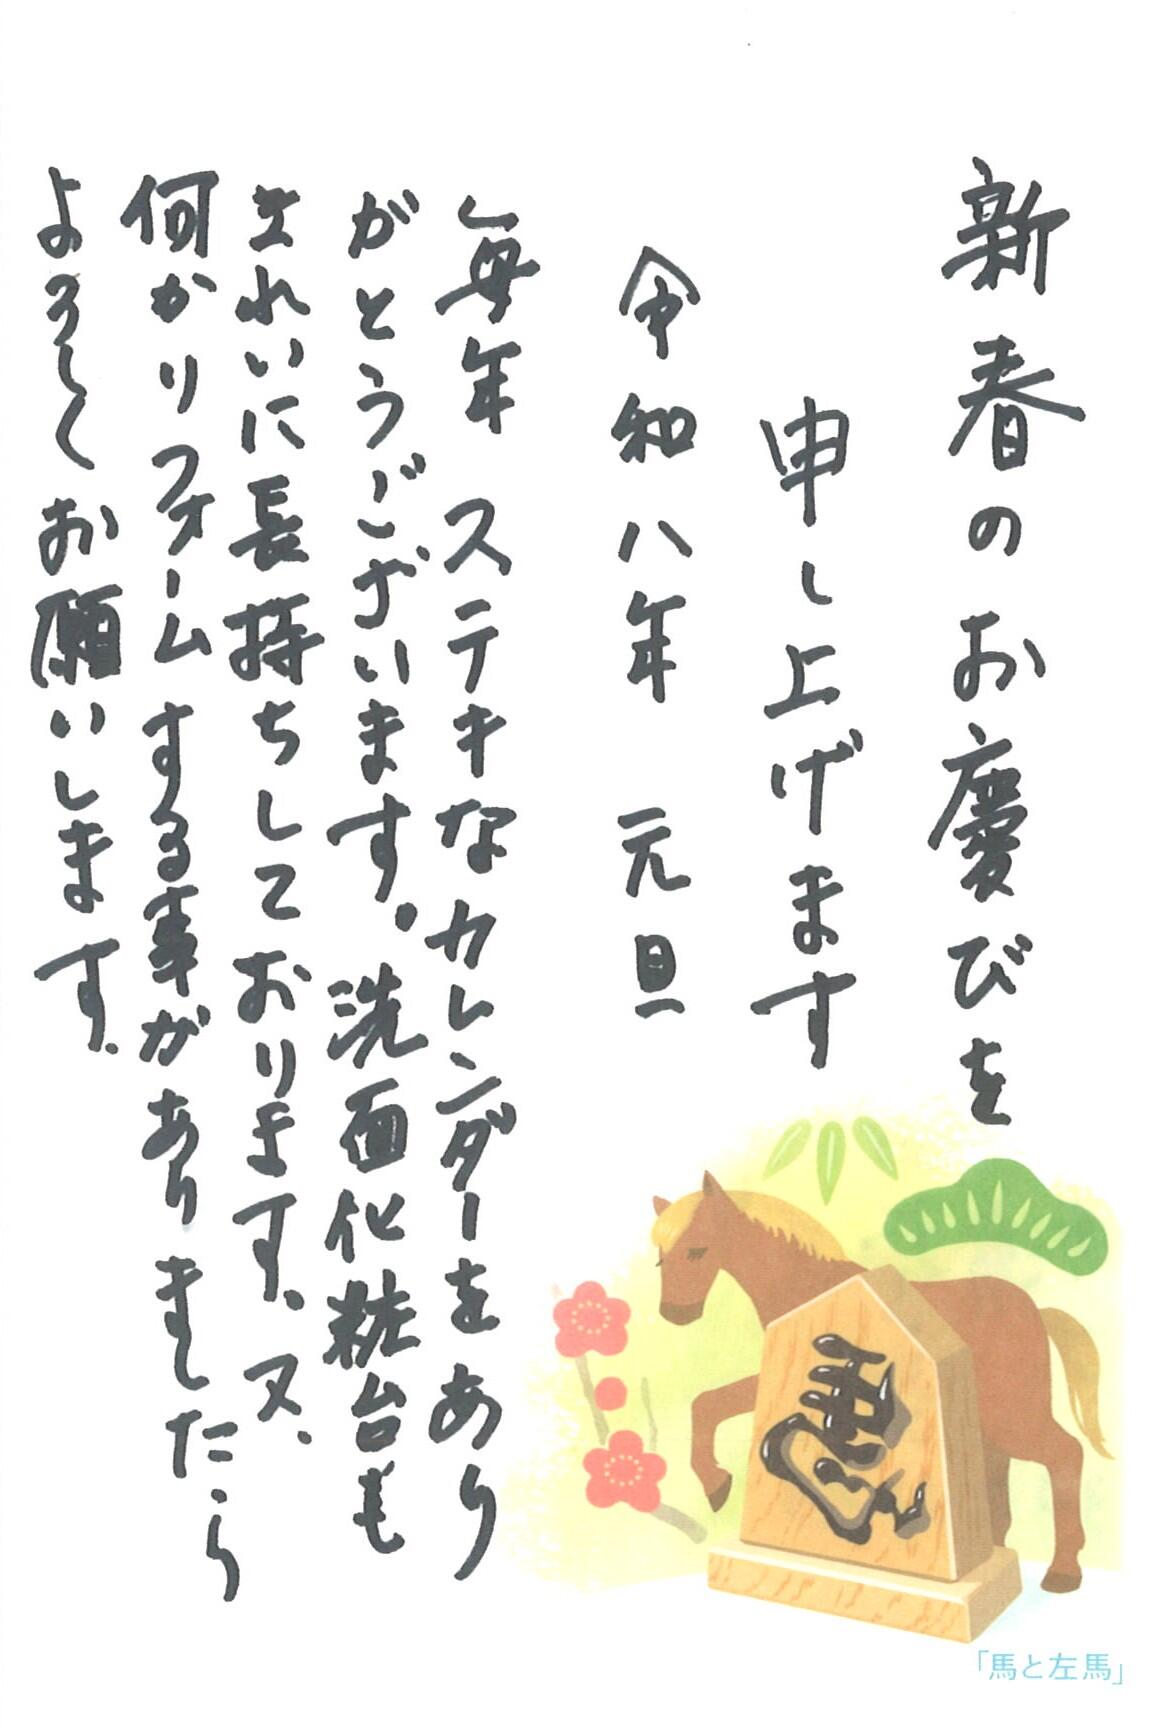 新春のお慶びを
申し上げます
令和八年 元旦
毎年 ステキなカレンダーをあり
がとうございます。洗面化粧台も
きれいに長持ちしております。又、
何かリフォームする事がありましたら
よろしくお願いします。
「馬と左馬」